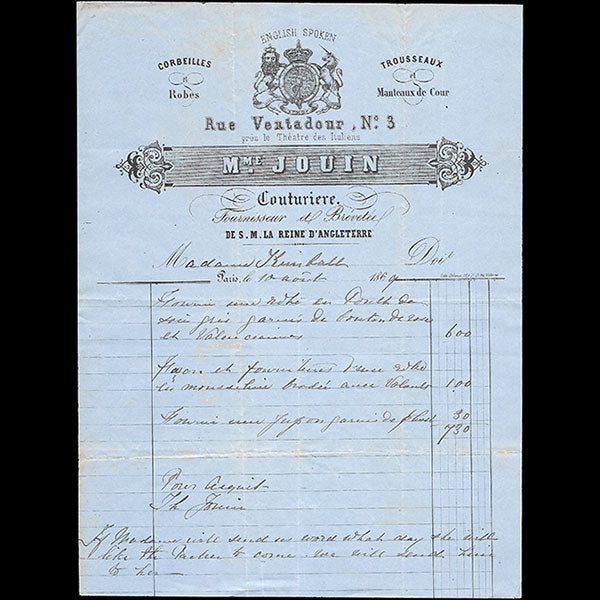 ENGLISH SPOKEN
CORBEILLES
et
Robes
TROUSSEAUX
et
Manteaux de Cour
Rue Ventadour, No. 3
près le Théatre des Italiens
MME. JOUIN
Couturiere.
Fournisseur et Brévetée
DE S. M. LA REINE D'ANGLETERRE
Madame Kimball Doit
Paris, le 10 août 1869
Fourni une robe en Poult de
soie gris garnie de
et Valenciennes 600
Façon et fournitures d'une robe
en mousseline brodée avec Volants 100
Fourni un Jupon garni de 30
730
Pour acquit
Th Jouin
If Madame will send us word what day she will
like the Packer to come we will send him
to her